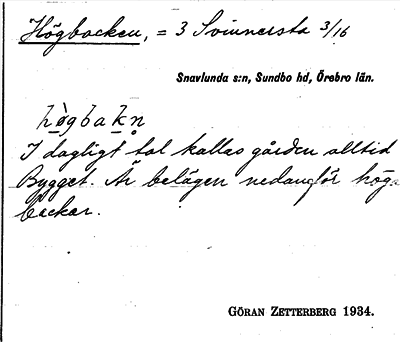 Högbacken, = 3 Svinnersta 3/16
Snavlunda s:n, Sundbo hd, Örebro län.
hø̀gbakn̥
I dagligt tal kallas gården alltid
Bygget. Är belägen nedanför höga
backar.
GÖRAN ZETTERBERG 1934.